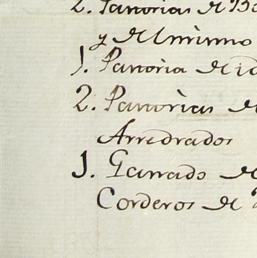 2. Panorias de
y de Unsinno
1. Panoria de id
2. Panorias de
Arredrados
1. Ganado de
Corderos de